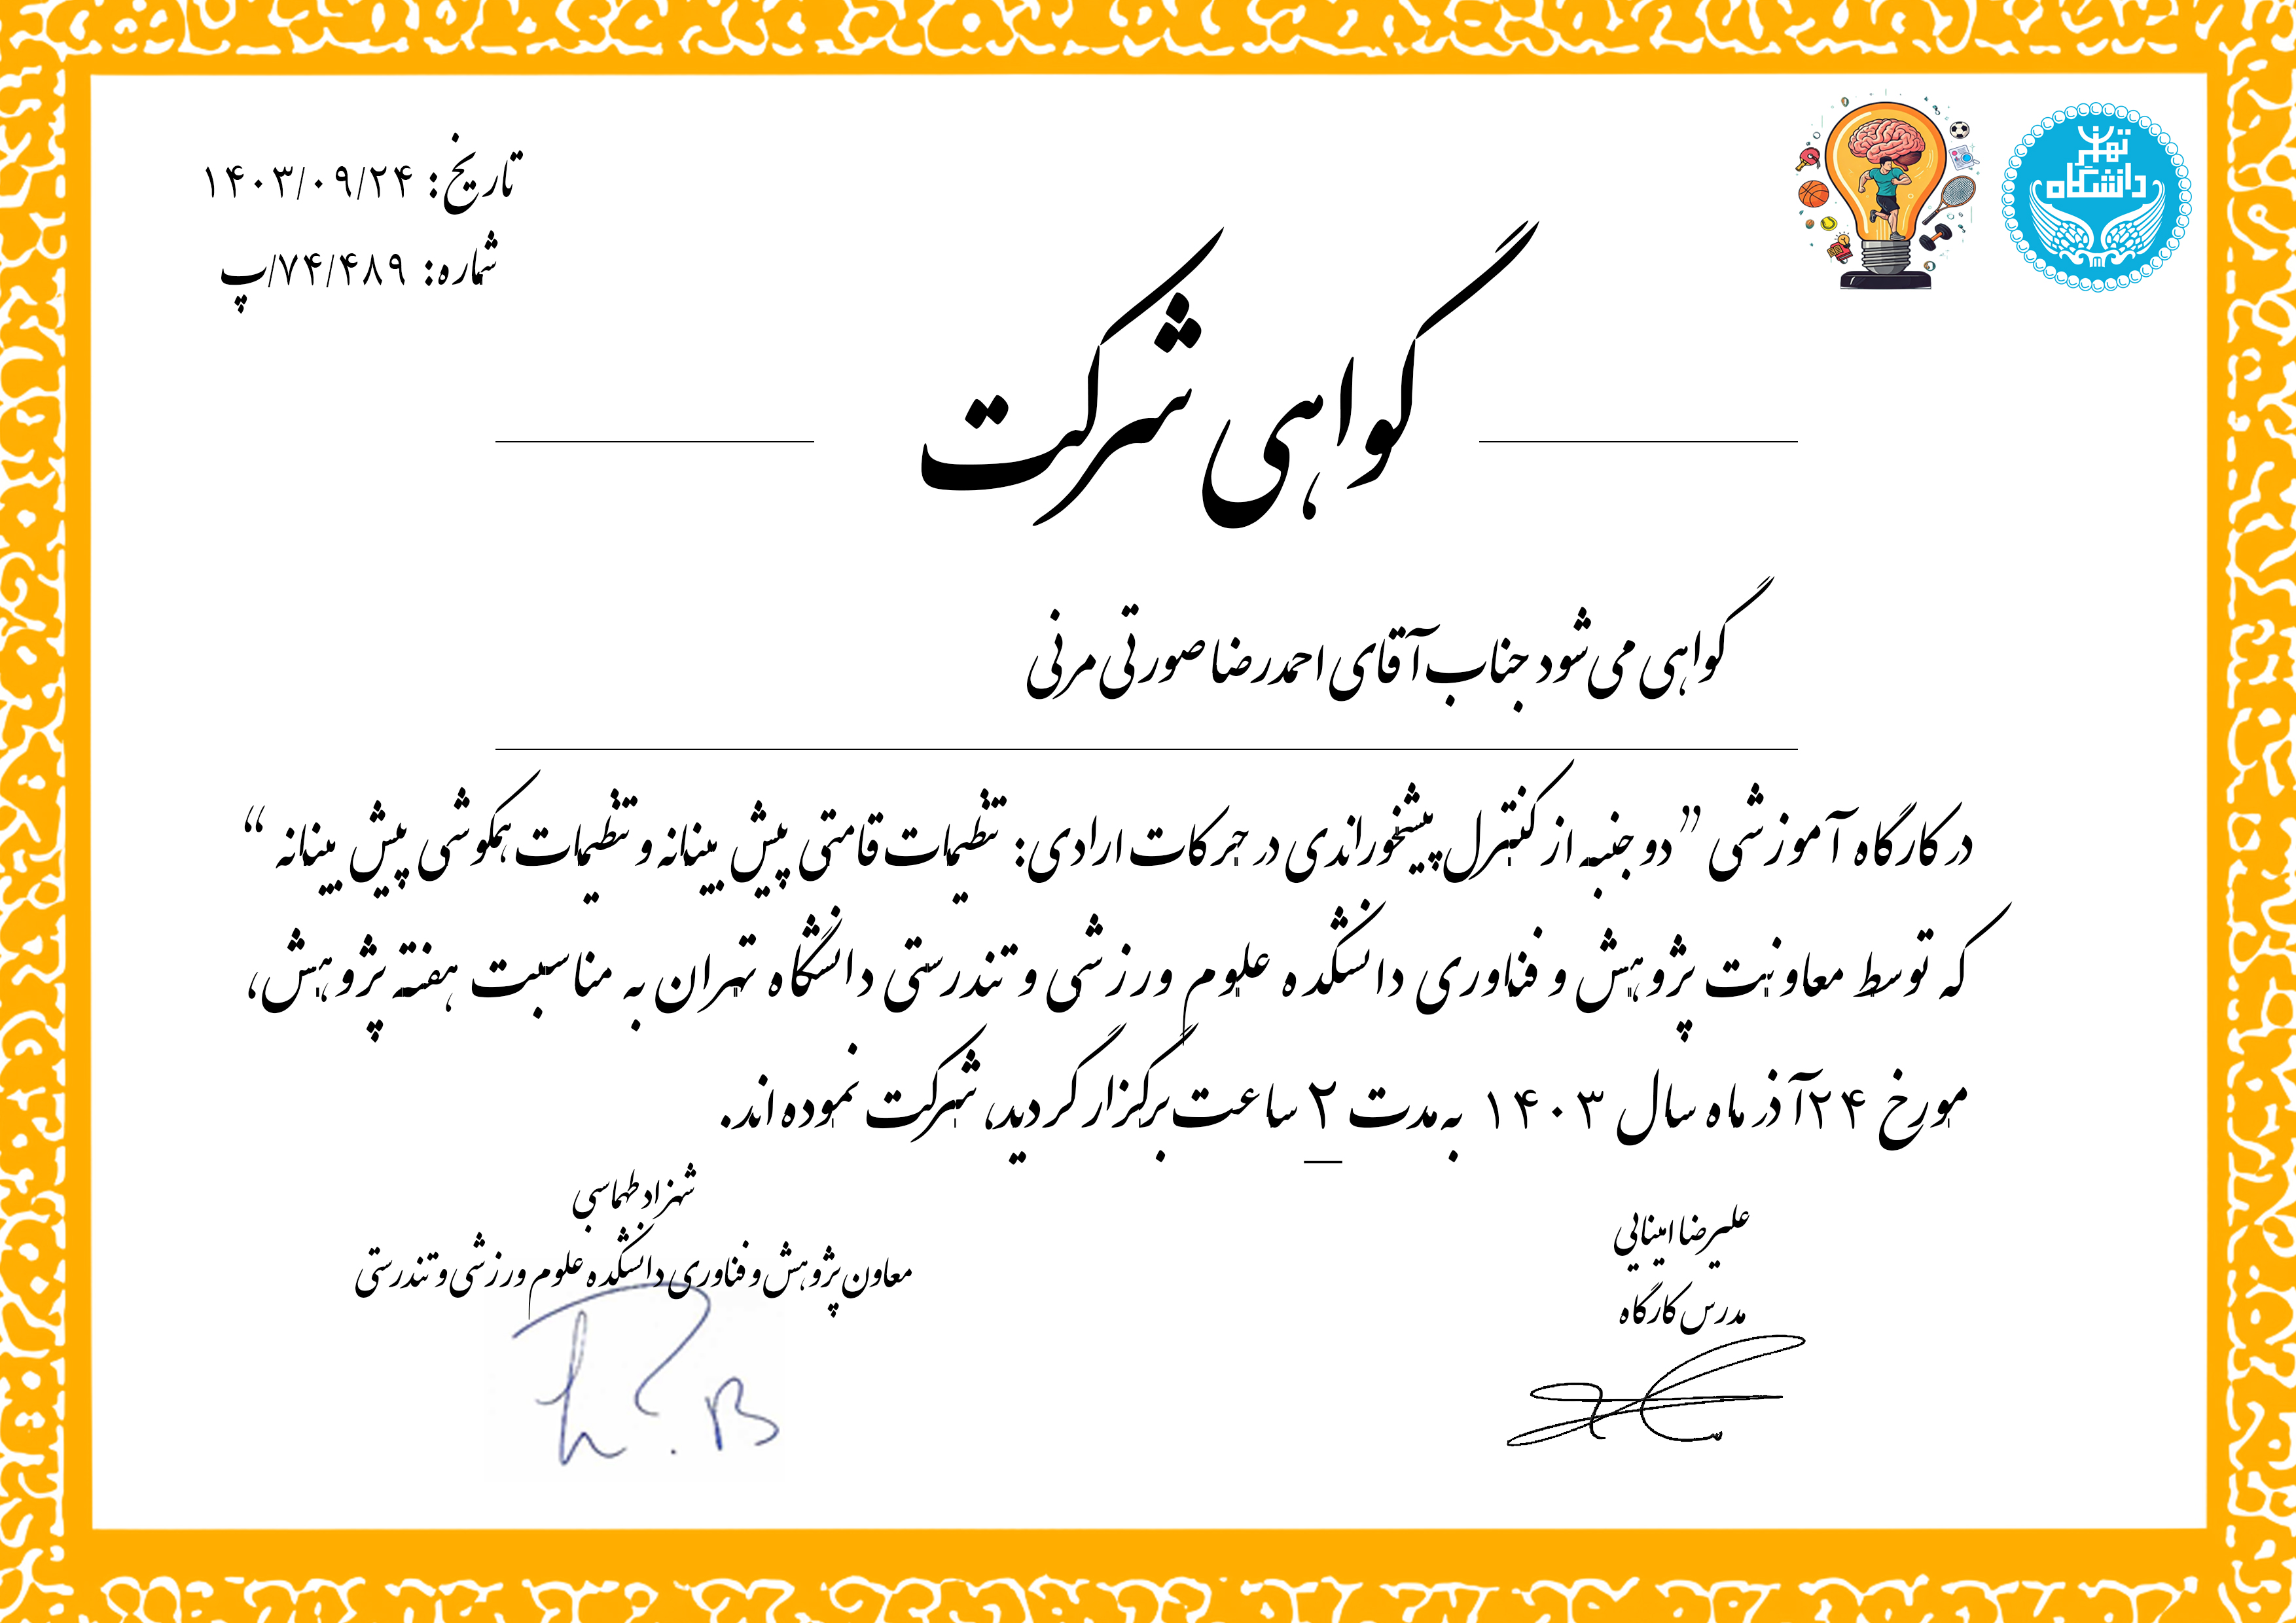 تهران
دانشگاه
تاریخ: ۱۴۰۳/۰۹/۲۴
شماره: ۷۴/۴۸۹/پ
گواهی شرکت
گواهی می‌شود جناب آقای احمدرضا صورتی مرنی
در کارگاه آموزشی ”دو جنبه از کنترل پیشخوراندی در حرکات ارادی: تنظیمات قامتی پیش بینانه و تنظیمات همکوشی پیش بینانه “
که توسط معاونت پژوهش و فناوری دانشکده علوم ورزشی و تندرستی دانشگاه تهران به مناسبت هفته پژوهش،
مورخ ۲۴آذر ماه سال ۱۴۰۳ به‌مدت ۲ ساعت برگزار گردید، شرکت نموده اند.
علیرضا امینایی
مدرس کارگاه
شهزاد طهماسبی
معاون پژوهش و فناوری دانشکده علوم ورزشی و تندرستی